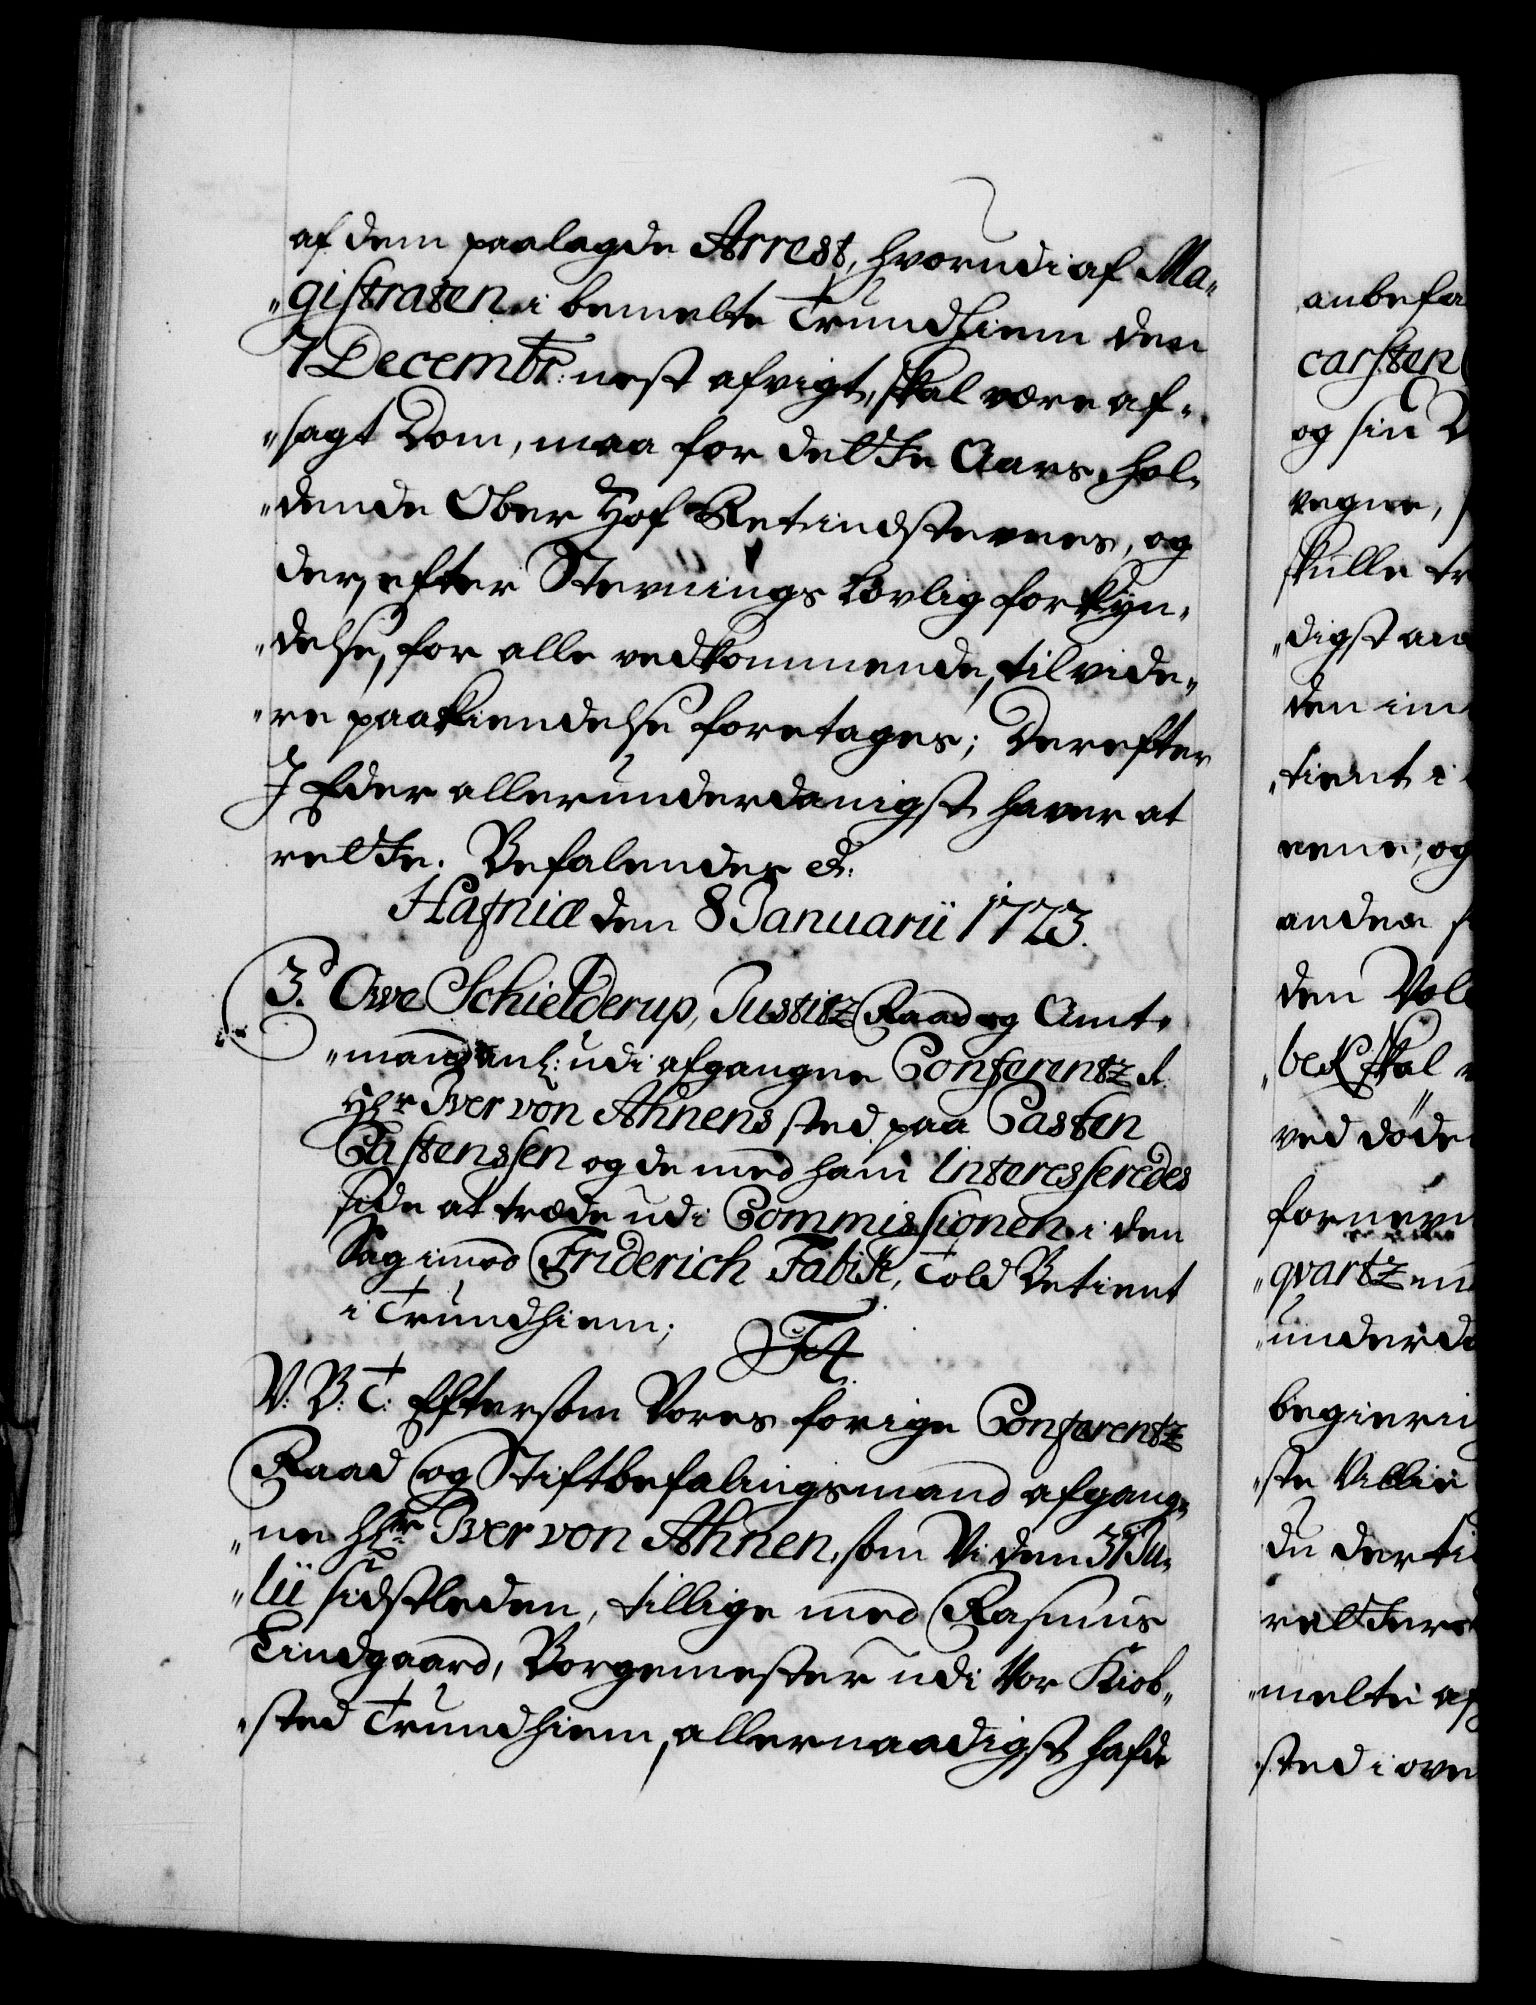 af dem paalagde Arrest, hvorudi af Ma„
„gistraten i bemelte Trundhiem den
7 Decembr: nest afvigt, skal være af„
„sagt Dom, maa for dette Aars hol„
„dende Ober Hof Ret indstevnes, og
der, efter Stevnings lovlig forkyn„
„delse, for alle vedkommende, til vide„
„re paakiendelse foretages; Derefter
I Eder allerunderdanigst haver at
rette. Befalendes &:
Hafniæ den 8 Januarii 1723.
3. Owe Schielderup, Justitz Raad og Amt„
„mand anl: udi afgangne Conferentz R.
Hr Iver von Ahnens sted paa Casten
Castenssen og de med ham interesseredes
side at træde udi Commissionen i den
Sag imod Friderich Fabisk, Told Betient
i Trundhiem;
F4.
V: B: T: Eftersom Vores forige Conferentz
Raad og Stiftbefalingsmand afgang„
„ne Hr Iver von Ahnen, som Vi den 31 Ju„
„lii sidstleden, tillige med Rasmus
Lindgaard, Borgemester udi Vor Kiøb„
„sted Trundhiem, allernaadigst hafde
anbefa
carsten
og sin
vegne,
skulle tr
„digst an
den im
„tient i
evne, og
anden
den Vol
„beck skal
ved døde
fornevn
„qvartz
„underda
begierin
„ste Villie
du der ti
retter
„melte af
sted i ove